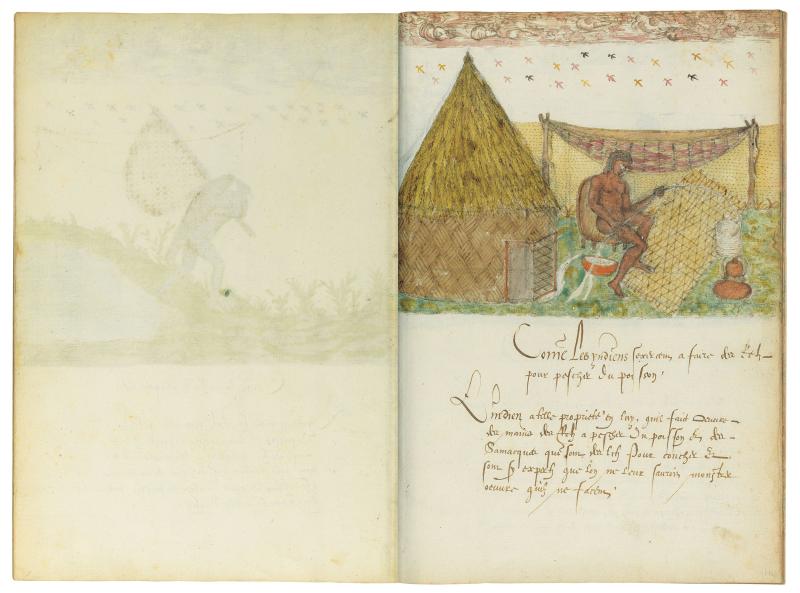 Comē Les yndiens sexercent a faire des Reh
pour pescher du poisson.
L'indien a telle proprieté en luy, qu'il fait oeuvre
des mains des Reh a pescher du poisson et des
Gamacques qui sont des lich Pour coucher Et
sont sy expertz que lon ne leur sauroit monstrer
oeuvre qu'ilz ne facent.